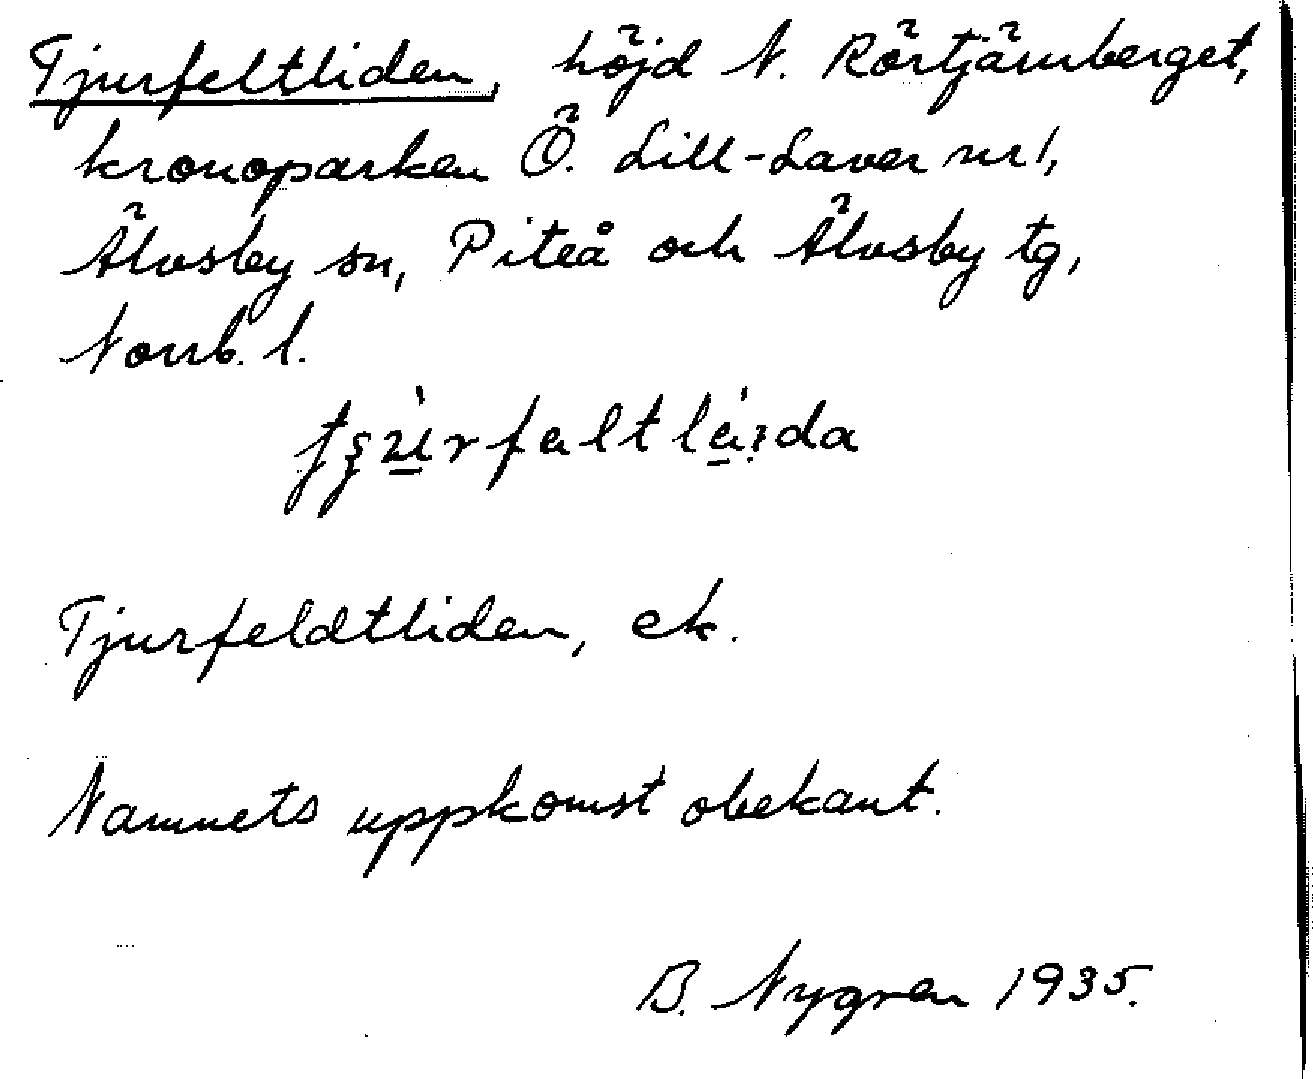 Tjurfeltliden, höjd N. Rörtjärnberget,
kronoparken Ö. Lill-Laver nr 1,
Älvsby sn, Piteå och Älvsby tg,
Norrb. l.
Tjurfeldtliden, ek.
Namnets uppkomst obekant.
B. Nygren 1935.